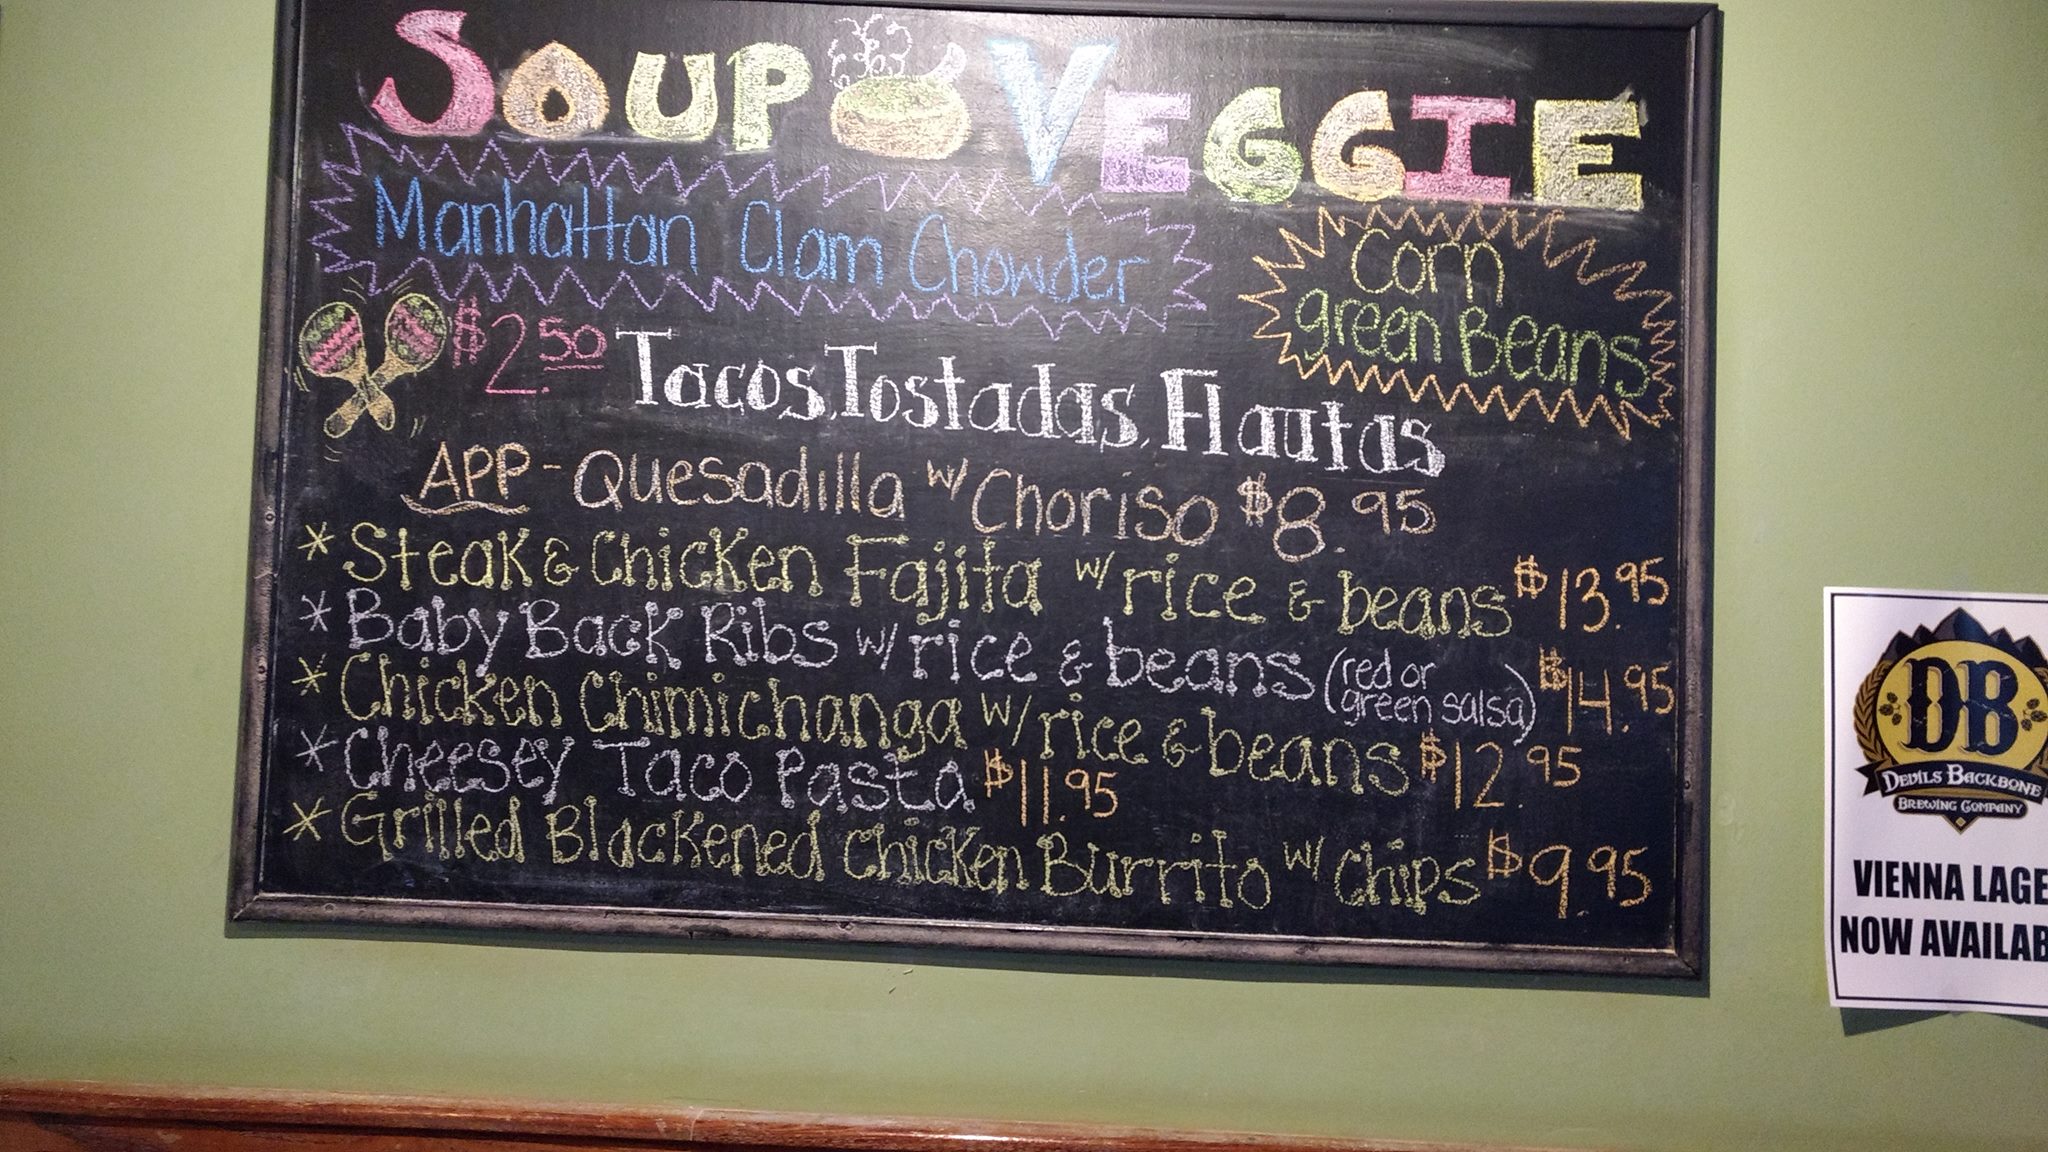 SOUP VEGGIE
Manhattan Clam Chowder
Corn
green Beans
$2.50 Tacos, Tostadas, Flautas
APP - Quesadilla w/ Choriso $8.95
* Steak & Chicken Fajita w/ rice & beans $13.95
* Baby Back Ribs w/ rice & beans (red or green salsa) $14.95
* Chicken Chimichanga w/ rice & beans $12.95
* Cheesey Taco Pasta $11.95
* Grilled Blackened Chicken Burrito w/ Chips $9.95
DB
DEVILS BACKBONE
BREWING COMPANY
VIENNA LAGE
NOW AVAILAB